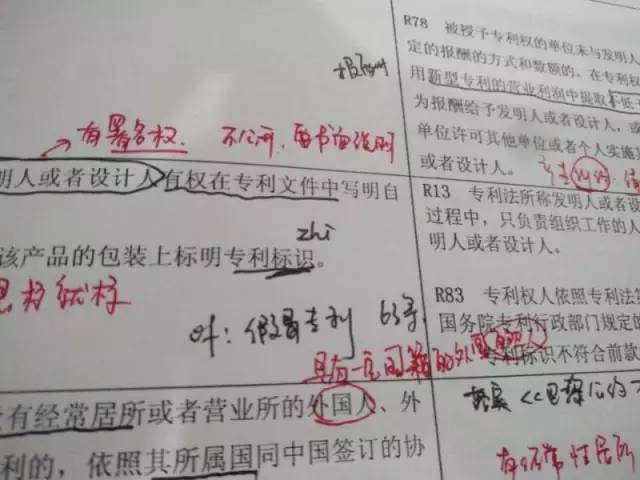 有署名权. 不公开,
明人或者设计人有权在专利文件中写明自
zhi
该产品的包装上标明专利标识。
假冒专利 63条
具有一定国籍的外国人
有经常居所或者营业所的外国人、外
利的,依照其所属国同中国签订的协
R78 被授予专利权的单位未与发明人
定的报酬的方式和数额的,在专利权
用新型专利的营业利润中提取不低
为报酬给予发明人或者设计人,或
单位许可其他单位或者个人实施
或者设计人。
R13 专利法所称发明人或者设
过程中,只负责组织工作的人
明人或者设计人。
R83 专利权人依照专利法
国务院专利行政部门规定的
专利标识不符合前款
有经常性居所